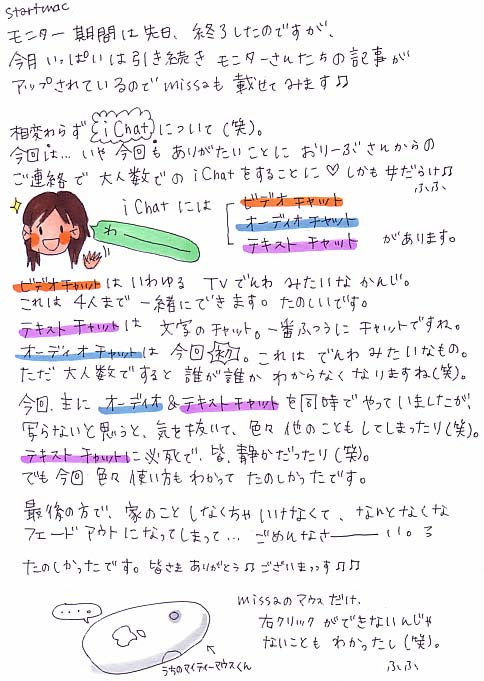 startmac
モニター期間は先日、終了したのですが、
今月いっぱいは引き続きモニターさんたちの記事が
アップされているのでmissaも載せてみます♫
相変わらず iChat について(笑)。
今回は… いや今回も ありがたいことに おりーぶさんからの
ご連絡で 大人数での iChatをすることに♡ しかも女だらけ♫
ふふ
iChatには
ビデオチャット
オーディオチャット
テキストチャット
があります。
わーーー
ビデオチャットは いわゆる TVでんわ みたいな かんじ。
これは 4人まで 一緒にできます。たのしいです。
テキストチャットは 文字のチャット。一番ふつうに チャットですね。
オーディオチャットは 今回 初。これは でんわ みたいなもの。
ただ 大人数ですると 誰が誰か わからなくなりますね(笑)。
今回、主に オーディオ&テキストチャットを同時でやっていましたが、
写らないと思うと、気を抜いて、色々他のこともしてしまったり(笑)。
テキストチャットに必死で、皆、静かだったり(笑)。
でも今回 色々 使い方もわかって たのしかったです。
最後の方で、家のこと しなくちゃ いけなくて、なんとなくな
フェードアウトになってしまって… ごめんなさーーーいい。。
たのしかったです。皆さま ありがとう♫ございまっす♫♫
missaのマウスだけ、
右クリックができないんじゃ
ないことも わかったし(笑)。
ふふ
....
うちのマイティーマウスくん